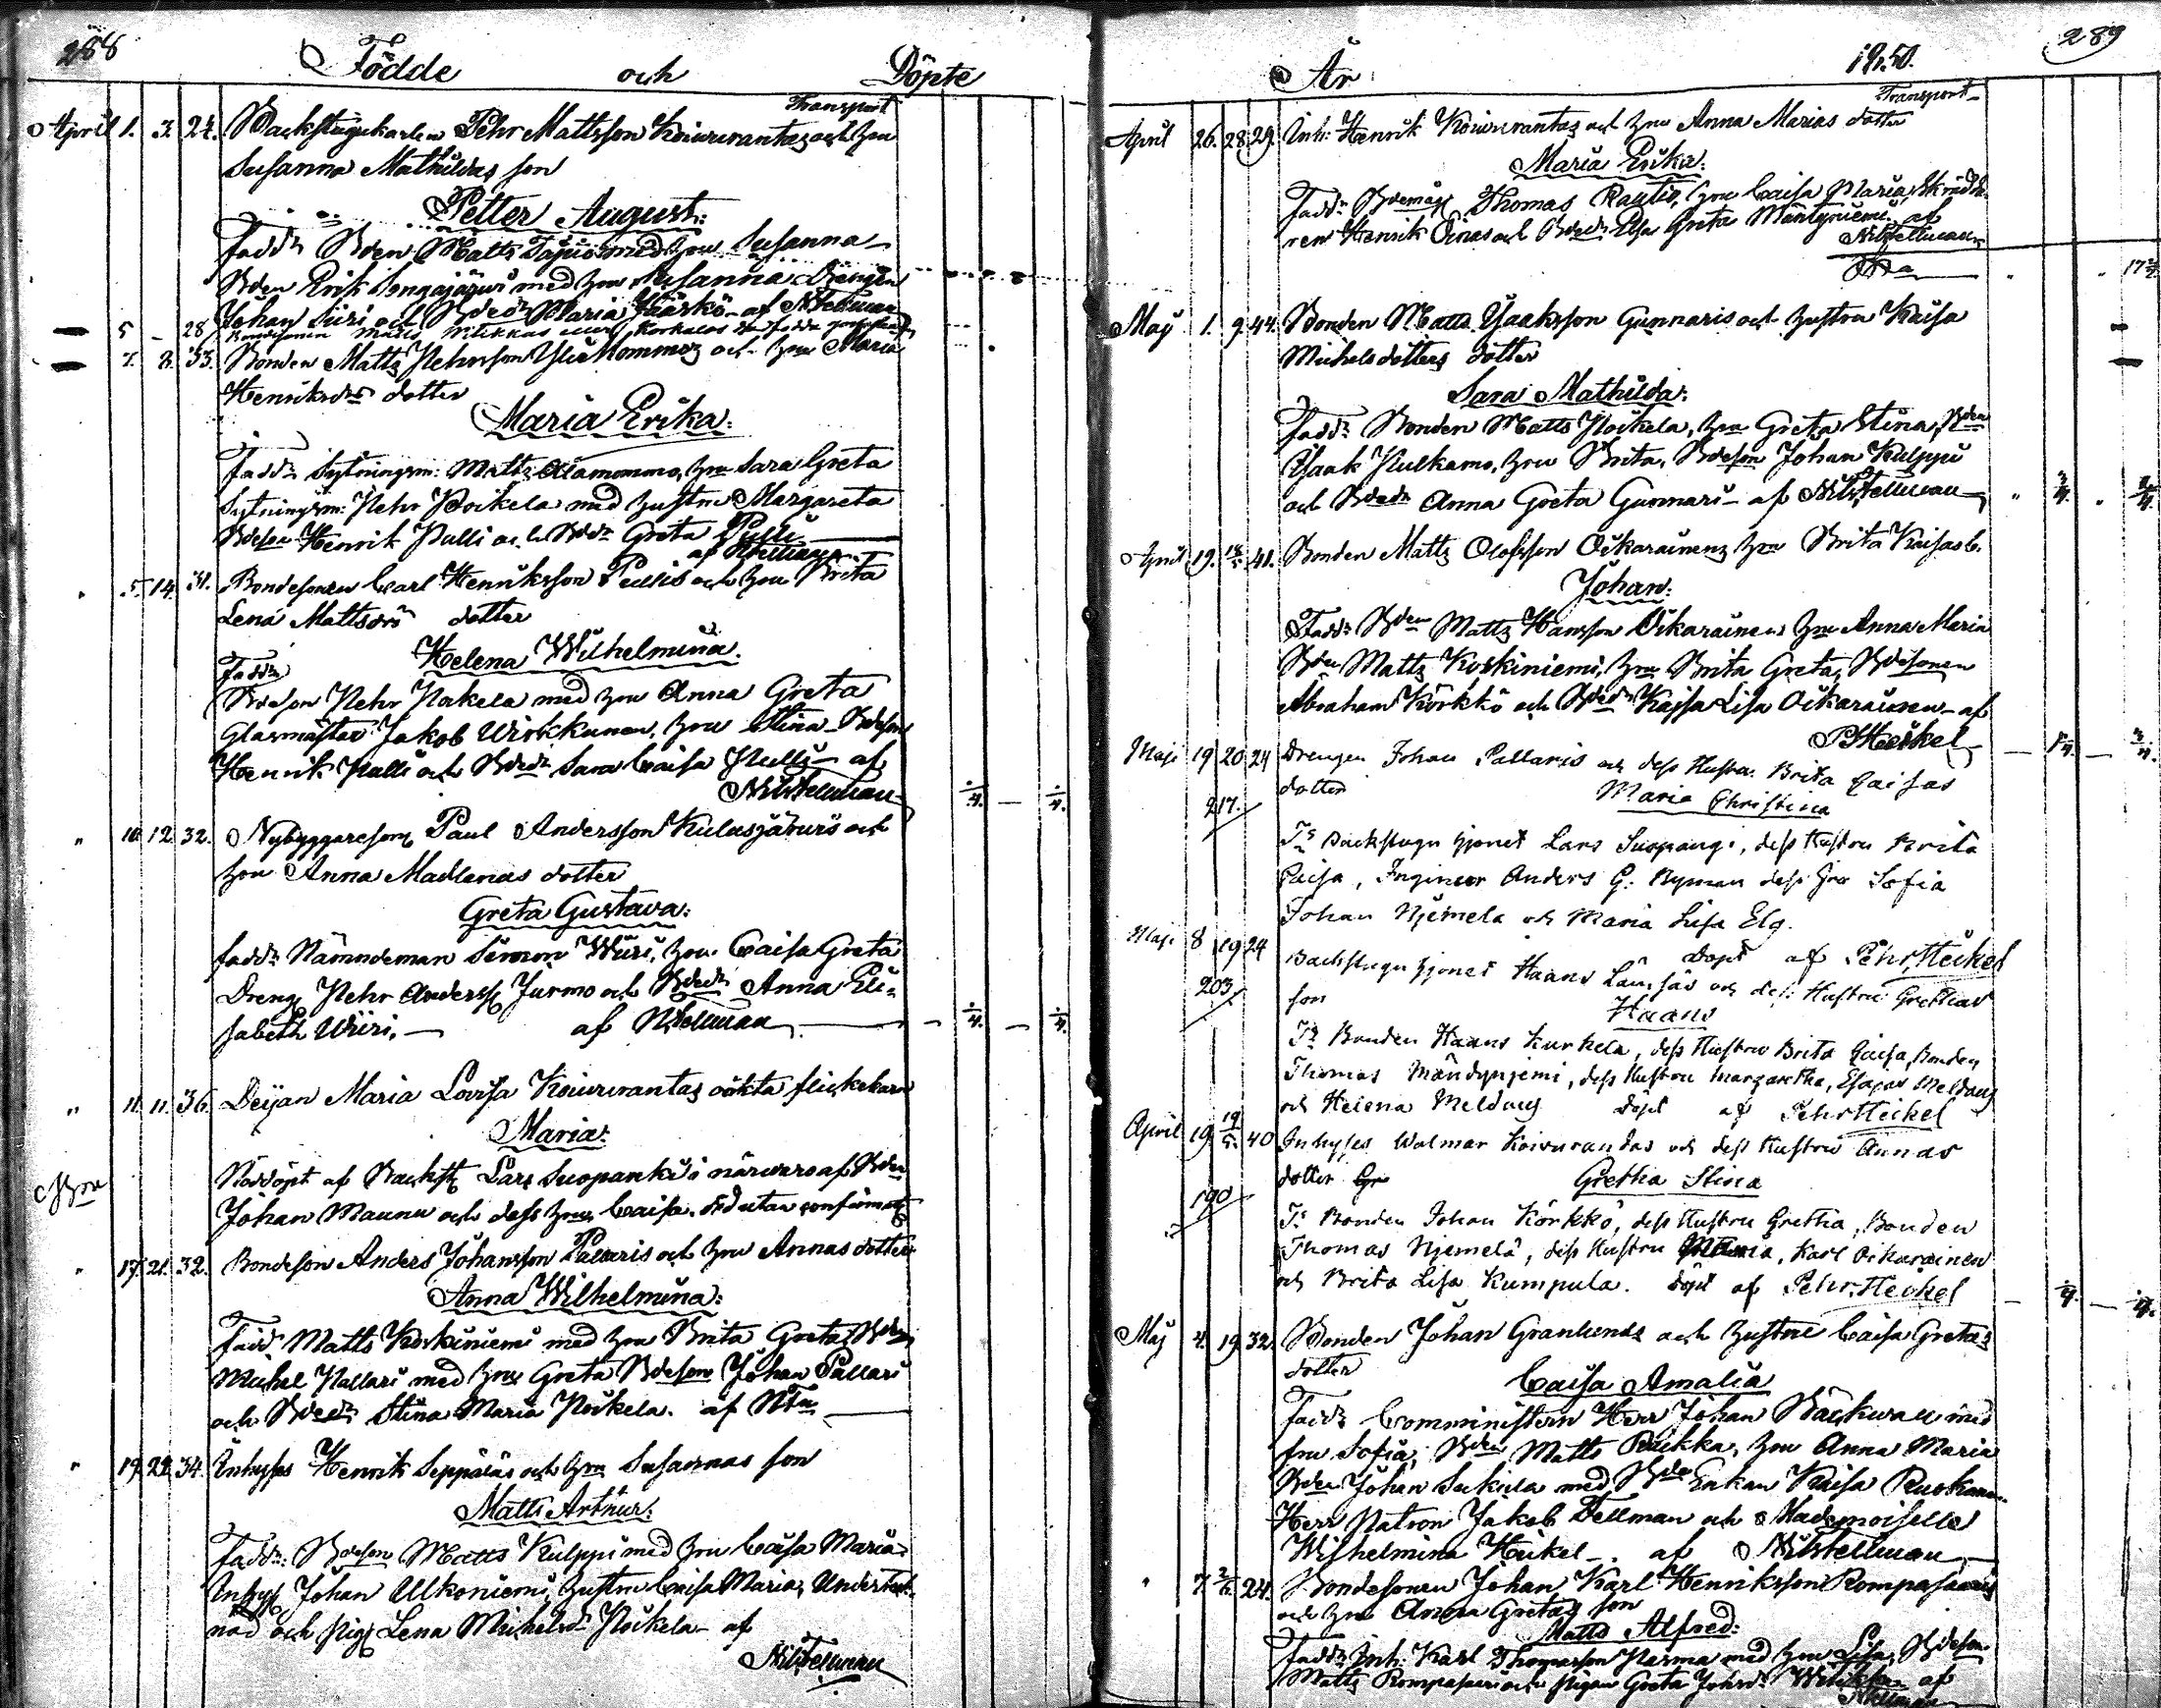 288
Födde och Döpte
Transport
April 1. 3. 24. Backstugukarlen Pehr Mattsson Koivurantas och hru
Susanna Mathildas son
Petter August.
Faddr Bden Matts Tapio med hru Susanna
Bden Erik Songajärvi med hru Susanna Drengen
Johan Siiri och Bdedr Maria Kärkö af NTellman
5 28
7. 8. 33. Bonden Matts Pehrsson Yli Nommos och hru Maria
Henriksdrs dotter
Maria Erika.
Faddr Sytningsm: Matts Alamommo, hru Sara Greta
Sytningsm: Pehr Poikela med hustru Margareta
Bdeson Henrik Pulli och Bdr Greta Pulli
af
5. 14. 31. Bondesonen Carl Henriksson Pullis och hru Brita
Lena Mattsdrs dotter
Helena Wilhelmina.
Faddr
Bdeson Pehr Poikela med hru Anna Greta
Glasmästar Jakob Wirkkunen, hru Stina Bdeson
Henrik Pulli och Bdedr Sara Caisa Pulli af
NWTellman
10. 12. 32. Nybyggareson Paul Andersson Kulusjärvis och
hru Anna Madlenas dotter
Greta Gustava.
Faddr Nämndeman Simon Wiiri, hru Caisa Greta
Dreng Pehr Anderss Jurmo och Bdedr Anna Eli-
sabeth Wiiri. af NTellman
11. 11. 36. Deijan Maria Lovisa Koivurantas oäkta flickebarn
Maria.
Nöddöpt af Backst Lars Suopanki i närwaro af Bden
Johan Maunu och dess hru Caisa.
17. 21. 32. Bondeson Anders Johansson Pallaris och hru Annas dotter
Anna Wilhelmina.
Fadd Matts Koskiniemi med hru Brita Greta, Bden
Michel Pallari med hru Greta Bdeson Johan Pallari
och Bdedr Stina Maria Poikela. af NTn
19. 22. 34. Inhyses Henrik Seppäläs och hru Susannas son
Matts Arthur.
Faddr: Bdeson Matts Kulppi med hru Caisa Maria
Inhys Johan Ulkoniemi, hustru Caisa Maria, Underteck-
nad och pig Lena Michelsdr Poikela af
NWTellman
289
År 1850.
Transport
April 26. 28. 29. Inh: Henrik Koivurantas och hru Anna Marias dotter
Maria Erika.
Faddr Bdemåg Thomas Rautio, hru Caisa Maria, Skrädda-
ren Henrik Oinas och Bdedr Elsa Greta Mäntyniemi af
NWTellman
Maj 1. 9. 44. Bonden Matts Isaksson Gunnaris och hustru Kaisa
Michelsdotters dotter
Sara Mathilda.
Faddr Bonden Matts Poikela, hru Greta Stina, Bden
Isaak Pulkamo, hru Brita, Bdeson Johan Kulppi
och Bdedr Anna Greta Gunnari af NWTellman
April 19. 41. Bonden Matts Olofsson Oikarainens hru Brita Kaisas b.
Johan.
Faddr Bden Matts Hansson Oikarainen hru Anna Maria
Bden Matts Koskiniemi, hru Brita Greta, Bdesonen
Abraham Körkkö och Bdedr Kajsa Lisa Oikarainen af
PHeikel
Maji 19 20 24 Drengen Johan Pallaris och dess Hustru Brita Caisas
dotter
217.
Maria Christina
Fr Backstugu hjonet Lars Suopangi, dess Hustru Brita
Caisa, Ingineer Anders G: Nyman dess fru Sofia
Johan Njemela och Maria Lisa Elg.
döpt af Pehr Heikel
Maji 8 19 24 Backstugu hjonet Haans Länsäs och dess Hustru Grethas
son
203
Haans
Fr Bonden Haans Kurkela, dess Hustru Brita Caisa, Bonden
Thomas Mändynjemi, dess Hustru Margaretha, Esajas Meldaus
och Helena Meldaus döpt af Pehr Heikel
April 19 19/5 40 Inhyses Wolmar Koivurandas och dess Hustru Annas
dotter
190
Gretha Stina
Fr Bonden Johan Körkkö, dess Hustru Gretha, Bonden
Thomas Njemelä, dess Hustru Maria, Karl Oikarainen
och Brita Lisa Kumpula. döpt af Pehr Heikel
Maj 4. 19. 32. Bonden Johan Granlunds och hustru Caisa Gretas
dotter
Caisa Amalia
Faddr Comministern Herr Johan Bäckwall med
fru Sofia, Bden Matts Raikka, hru Anna Maria
Bden Johan Sukula med Bde Enkan Kaisa
Herr Patron Jakob Fellman och Mademoiselle
Wilhelmina Heikel af NWTellman
7. 2/6. 24. Bondesonen Johan Karl Henriksson Rompasaaris
och hru Anna Gretas son
Matts Alfred.
Faddr Inh: Karl Thomasson Narma med hru Lisa, Bdeson
Matts Rompasaari och pigan Greta Johsdr af